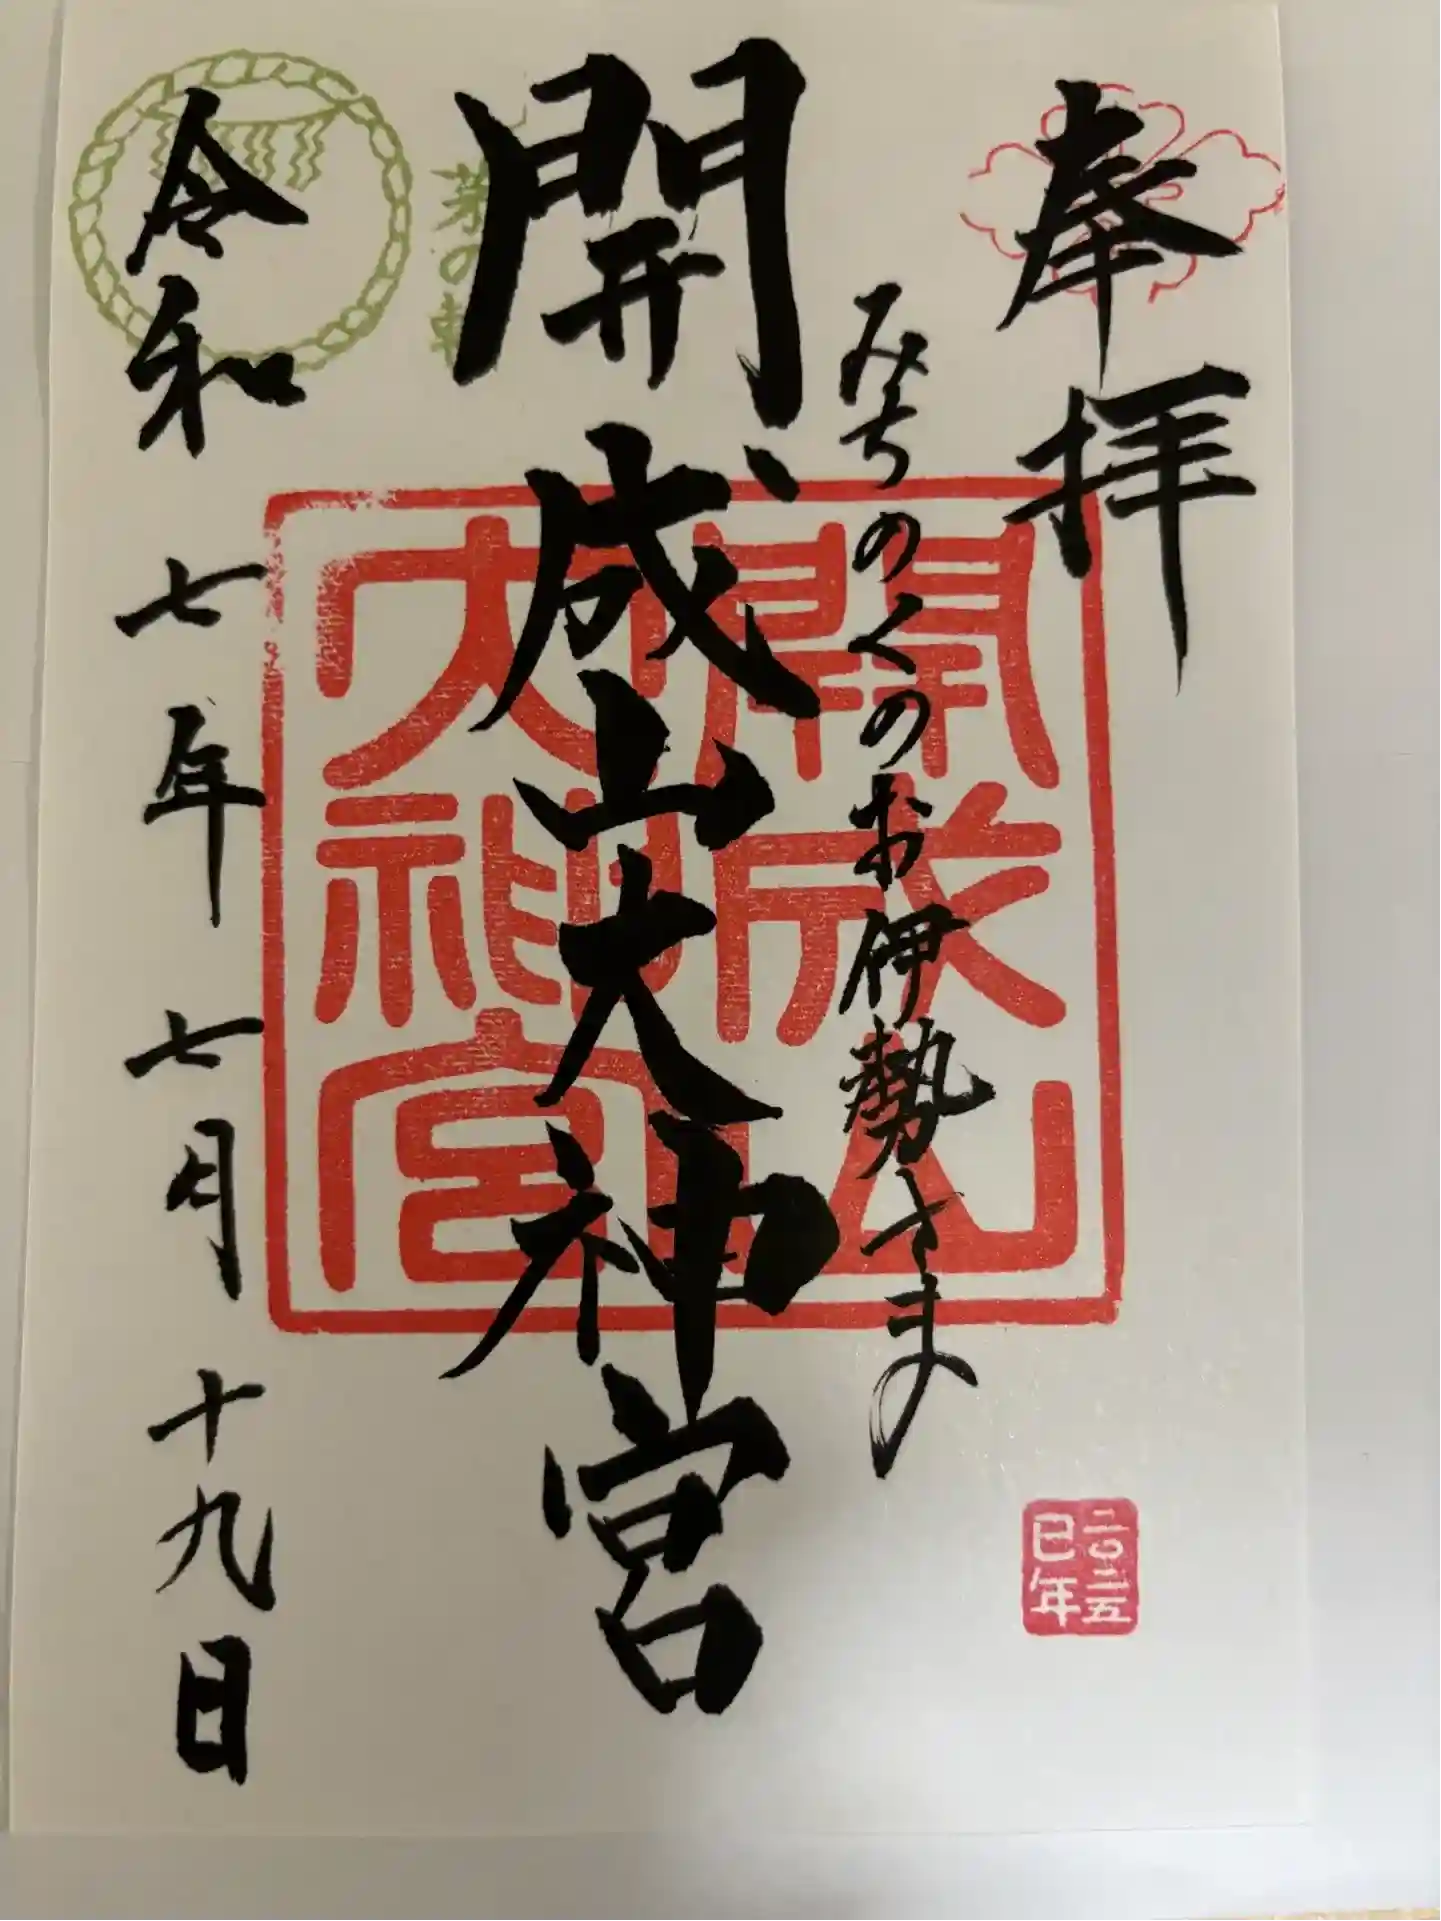 奉拝
みちのくのお伊勢さま
開成山大神宮
令和七年七月十九日
開成山
大神宮
二〇二五
巳年